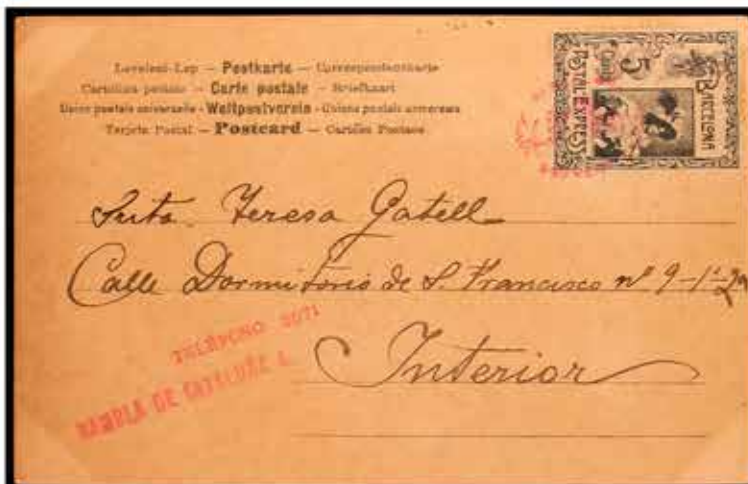 Levelező-Lap – Postkarte – Correspondenzkarte
Cartolina postale – Carte postale – Briefkaart
Union postale universelle – Weltpostverein – Unione postale universale
Tarjeta Postal – Postcard – Cartão Postal
BARCELONA
5
POSTAL EXPRESS
Srita. Teresa Gatell
Calle Dormitorio de S. Francisco nº 9–1º–2ª
Interior
TELÉFONO 2071
RAMBLA DE CATALUÑA 4